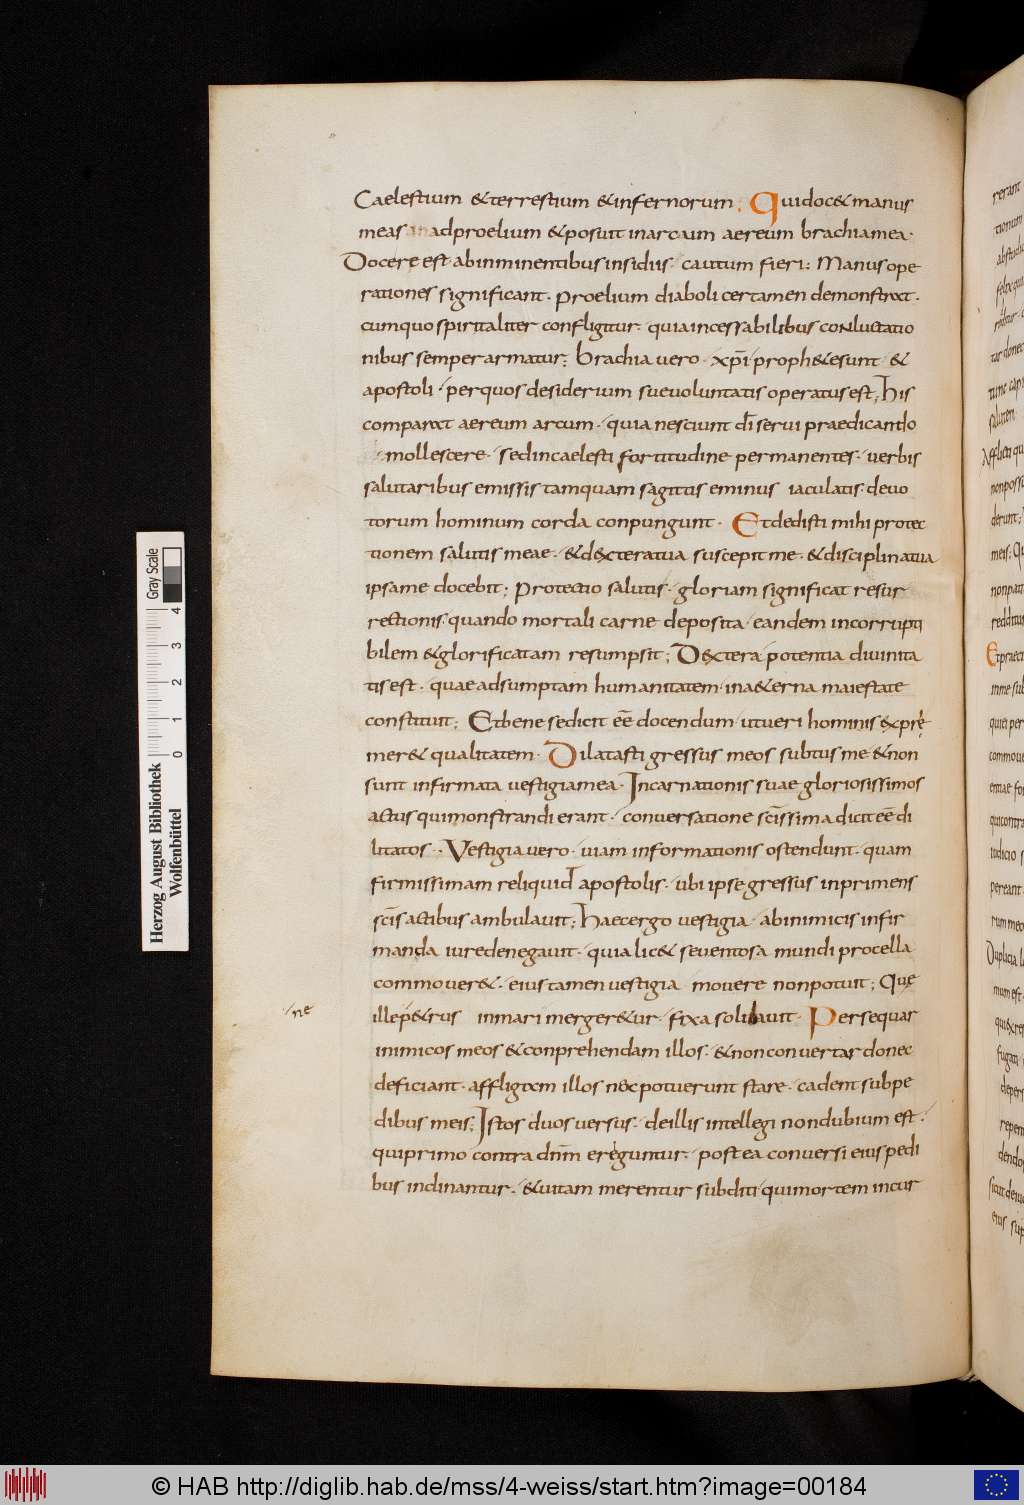 Caelestium &terrestium &infernorum; Quidoc& manus
meas adproelium &posuit inarcum aereum brachiamea·
Docere est· abinminentibus insidiis· cautum fieri: Manus ope
rationes significant· proelium diaboli certamen demonstrat·
cumquo spiritaliter confligitur· quiaincessabilibus coNluctatio
nibus semper armatur; brachia vero· xpi· proph&esunt· &
apostoli· perquos desiderium suevoluntatis operatus est; his
comparat aereum arcum· quia nesciunt di servi praedicando
mollescere· sedincaelesti fortitudine permanentes· verbis
salutaribus emissis tamquam sagittis eminus iaculatis· devo
torum hominum corda conpungunt· Etdedisti mihi protec
tionem salutis meae· &dextera tua suscepit me· &disciplinatua
ipsame docebit; Protectio salutis· gloriam significat resur
rectionis· quando mortali carne deposita· eandem incorrupti
bilem &glorificatam resumpsit; Dextera potentia divinita
tis est· quae adsumptam humanitatem· ina&erna maiestate
constituit; Etbene sedicit eē docendum· utveri hominis expri
mer& qualitatem· Dilatasti gressus meos subtus me &non
sunt infirmata vestigiamea· Incarnationis suae gloriosissimos
actus quimonstrandi erant· conversatione scissima dicit eē di
litatos· Vestigia vero· viam informationis ostendunt· quam
firmissimam reliquid apostolis· ubi ipse gressus inprimens
scis actibus ambulavit; haecergo vestigia· abinimicis infir
manda iuredenegavit· quia lic& seventosa mundi procella
commover&· eius tamen vestigia movere nonpotuit; Quę
ne
illep&rus inmari merger&ur· fixa solidavit· Persequar
inimicos meos &conprehendam illos· &nonconvertar donec
deficiant· affligam illos nec potuerunt stare· cadent subpe
dibus meis; Istos duos versus· deillis intellegi nondubium est·
quiprimo contra dnm ereguntur· postea conversi eius pedi
bus inclinantur· &vitam merentur subditi· quimortem incur
Herzog August Bibliothek
Wolfenbüttel
0 1 2 3 4
Gray Scale
© HAB http://diglib.hab.de/mss/4-weiss/start.htm?image=00184